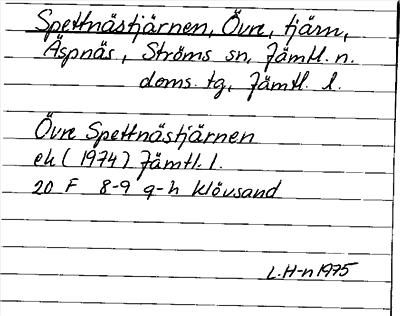 Spettnästjärnen, Övre, tjärn,
Äspnäs, Ströms sn, Jämtl. n.
doms. tg, Jämtl. l.
Övre Spettnästjärnen
ek (1974) Jämtl. l.
20 F 8-9 g-h Klövsand
L.H-n 1975